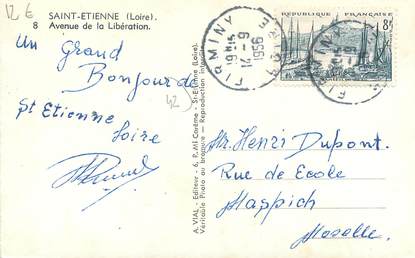 12 €
SAINT-ETIENNE (Loire).
8 Avenue de la Libération.
un Grand
Bonjour de
St Etienne
Loire
42
A. VIAL - Editeur - 6, P. Mi-Carême - St-Etienne (Loire)
Véritable Photo au bromure - Reproduction interdite
FIRMINY
LOIRE
14 - 9
1956
REPUBLIQUE FRANÇAISE
8f
FIRMINY
- 9
Mr. Henri Dupont.
Rue de Ecole
Happich
Moselle.